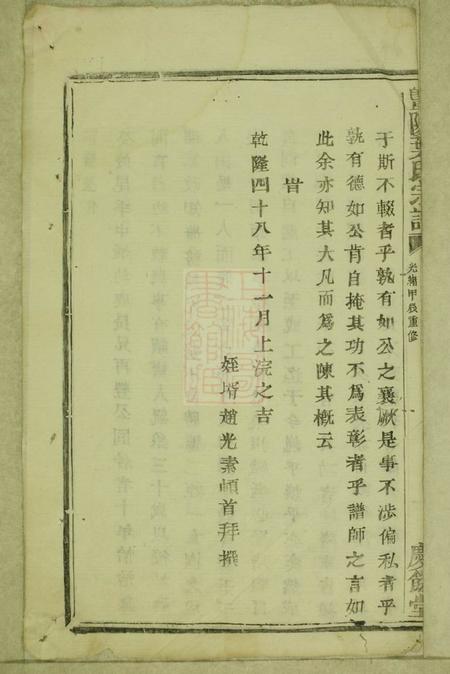 葉氏宗譜
光緒甲辰重修
慶餘堂
于斯不輟者乎孰有如公之襄厥是事不涉偏私者乎
孰有德如公肯自掩其功不為表彰者乎譜師之言如
此余亦知其大凡而為之陳其概云
旹
乾隆四十八年十一月上浣之吉
姪壻趙光素頓首拜撰